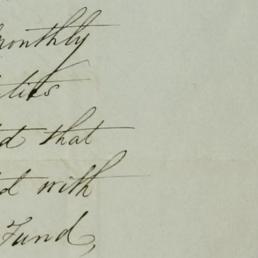 monthly
ties
d that
d with
Fund,